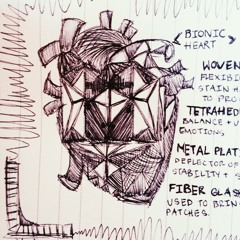 BIONIC
HEART
WOVEN
FLEXIBI
STAIN
TO PRO
TETRAHED
BALANCE + U
EMOTIONS.
METAL PLAT
DEFLECTOR OF
STABILITY + S
FIBER GLAS
USED TO BRIN
PATCHES.